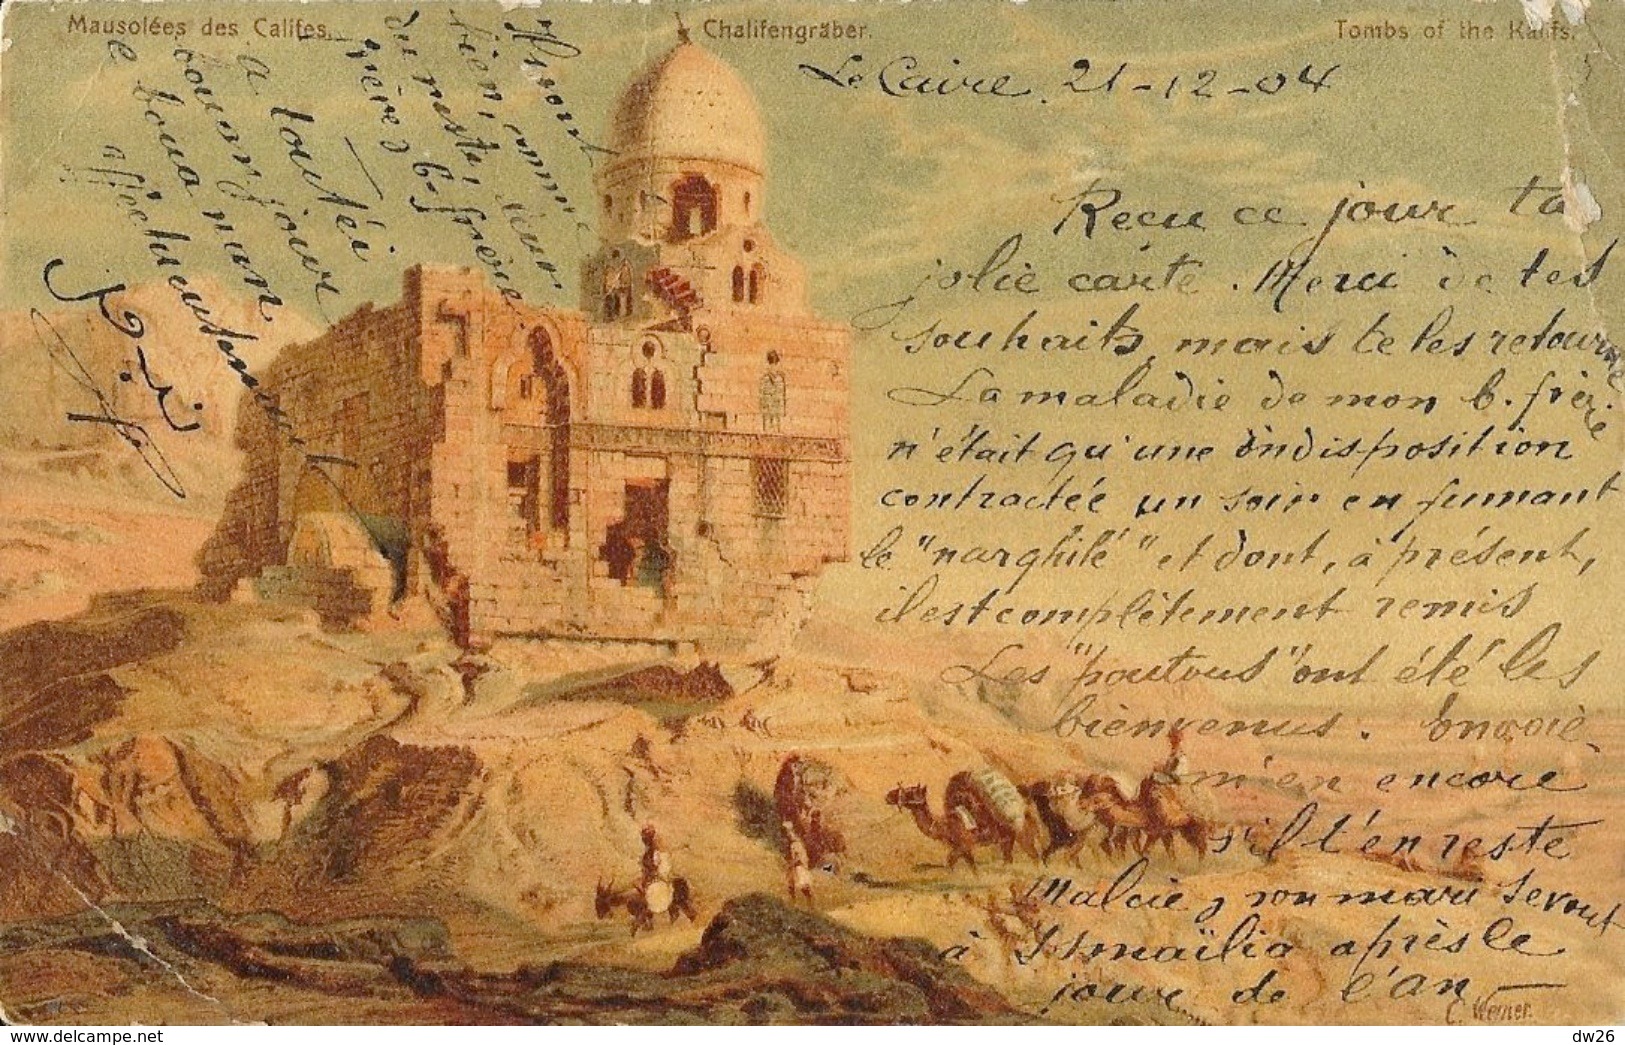 Mausolées des Califes.
Chalifengräber.
Tombs of the Kalifs.
Le Caire. 21-12-04
Reçu ce jour ta
jolie carte. Merci de tes
souhaits, mais te les retourne
La maladie de mon b. frère
n'était qu'une indisposition
contractée un soir en fumant
le "narghilé" et dont, à présent,
il est complètement remis
Les "poutous" ont été les
bienvenus. Envoie-
m'en encore
s'il t'en reste
son mari seront
à Ismaïlia après le
jour de l'an
Ils vont
bien, comme
du reste, leur
b. frère
a toutei
bounjour
e bona nuan
affectueusement
C. Werner.
dw26